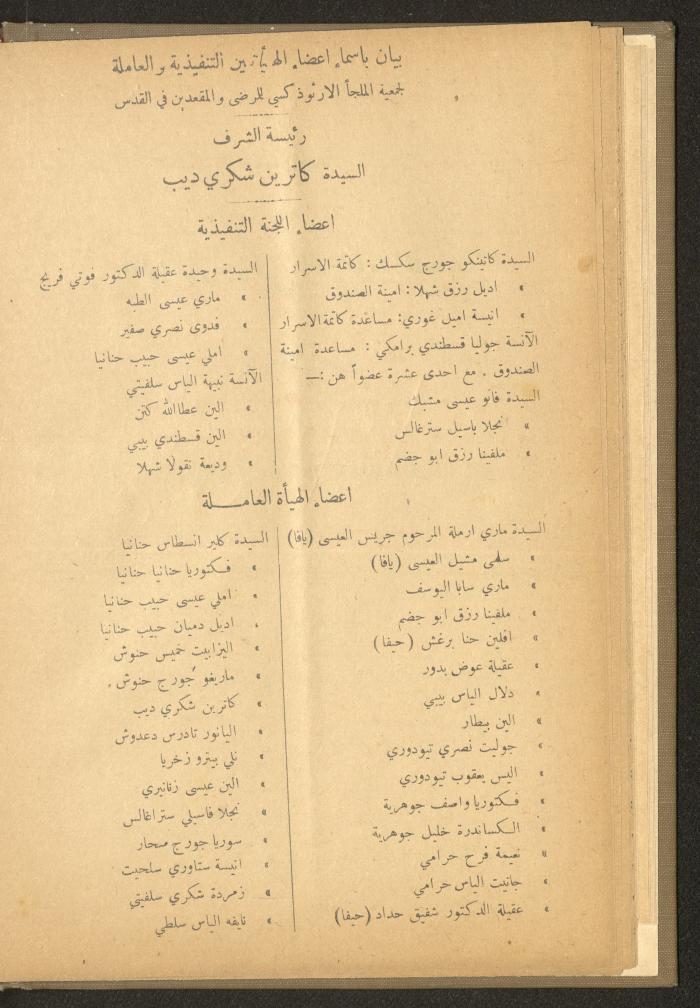 بيان باسماء اعضاء الهيأتين التنفيذية والعاملة
لجمعية الملجأ الارثوذكسي للمرضى والمقعدين في القدس
رئيسة الشرف
السيدة كاترين شكري ديب
اعضاء اللجنة التنفيذية
السيدة كاتينكو جورج سكسك : كاتمة الاسرار
» اديل رزق شهلا : امينة الصندوق
» انيسة اميل غوري : مساعدة كاتمة الاسرار
الآنسة جوليا قسطندي برامكي : مساعدة امينة
الصندوق . مع احدى عشرة عضواً هن :—
السيدة فانو عيسى مشبك
» نجلا باسيل سترغالس
» ملفينا رزق ابو جضم
السيدة وحيدة عقيلة الدكتور فوتي فريج
» ماري عيسى الطبه
» فدوى نصري صفير
» املي عيسى حبيب حنانيا
الآنسة نبيهة الياس سلفيتي
» الين عطاالله كتن
» الين قسطندي بيبي
» وديعة نقولا شهلا
اعضاء الهيأة العاملة
السيدة ماري ارملة المرحوم جريس العيسى (يافا)
» سلمى مشيل العيسى (يافا)
» ماري سابا اليوسف
» ملفينا رزق ابو جضم
» افلين حنا برغش (حيفا)
» عقيلة عوض بدور
» دلال الياس بيبي
» الين بيطار
» جوليت نصري تيودوري
» اليس يعقوب تيودوري
» فكتوريا واصف جوهرية
» الكساندرة خليل جوهرية
» نعيمة فرح حرامي
» جانيت الياس حرامي
» عقيلة الدكتور شفيق حداد (حيفا)
السيدة كلير انسطاس حنانيا
» فكتوريا حنانيا حنانيا
» املي عيسى حبيب حنانيا
» اديل دميان حبيب حنانيا
» اليزابيت خميس حنوش
» ماريغو جورج حنوش .
» كاترين شكري ديب
» اليانور تادرس دعدوش
» نلي بيترو زخريا
» الين عيسى زنانيري
» نجلا فاسيلي ستراغالس
» سوريا جورج سحار
» انيسة ستاوري سلحيت
» زمردة شكري سلفيتي
» نايفه الياس سلطي